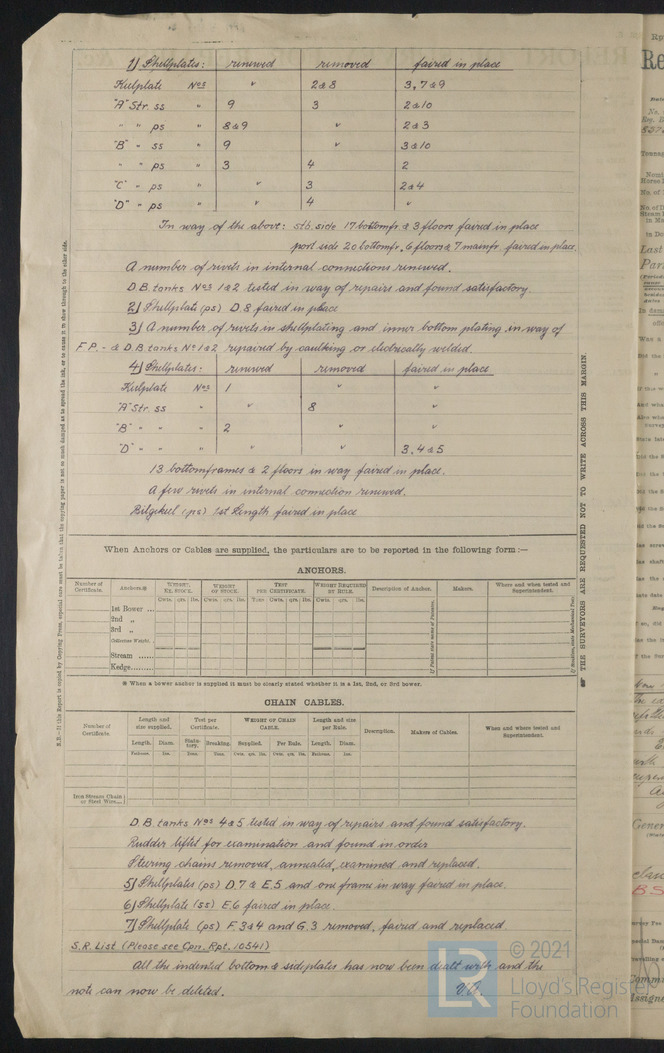 1) Shellplates: renewed removed faired in place
Keelplate Nos " 2 & 8 3, 7 & 9
"A" Str. ss " 9 3 2 & 10
" " ps " 8 & 9 " 2 & 3
"B" " ss " 9 " 3 & 10
" " ps " 3 4 2
"C" " ps " " 3 2 & 4
"D" " ps " " 4 "
In way of the above: stb. side 17 bottomfr. & 3 floors faired in place
port side 20 bottomfr., 6 floors & 7 mainfr. faired in place.
A number of rivets in internal connections renewed.
D.B. tanks Nos 1 & 2 tested in way of repairs and found satisfactory.
2) Shellplate (ps) D.8 faired in place
3) A number of rivets in shellplating and inner bottom plating in way of
F.P. - & D.B. tanks No 1 & 2 repaired by caulking or electrically welded.
4) Shellplates: renewed removed faired in place
Keelplate Nos 1 " "
"A" Str. ss " " 8 "
"B" " " " 2 " "
"D" " " " " " 3, 4 & 5
13 bottomframes & 2 floors in way faired in place.
A few rivets in internal connection renewed.
Bilgekeel (ps) 1st Length faired in place
When Anchors or Cables are supplied, the particulars are to be reported in the following form:—
ANCHORS.
Number of Certificate. Anchors.※ WEIGHT. EX. STOCK. WEIGHT OF STOCK. TEST PER CERTIFICATE. WEIGHT REQUIRED BY RULE. Description of Anchor. Makers. Where and when tested and Superintendent.
Cwts. qrs. lbs. Cwts. qrs. lbs. Tons. Cwts. qrs. lbs. Cwts. qrs. lbs.
1st Bower ...
2nd „
3rd „
Collective Weight.
Stream ......
Kedge.........
※ When a bower anchor is supplied it must be clearly stated whether it is a 1st, 2nd, or 3rd bower.
CHAIN CABLES.
Number of Certificate. Length and size supplied. Test per Certificate. WEIGHT OF CHAIN CABLE. Length and size per Rule. Description. Makers of Cables. When and where tested and Superintendent.
Length. Diam. Statutory. Breaking. Supplied. Per Rule. Length. Diam.
Fathoms. Ins. Tons. Tons. Cwts. qrs. lbs. Cwts. qrs. lbs. Fathoms. Ins.
Iron Stream Chain or Steel Wire....
D.B. tanks Nos 4 & 5 tested in way of repairs and found satisfactory.
Rudder lifted for examination and found in order
Steering chains removed, annealed, examined and replaced.
5) Shellplates (ps) D.7 & E.5 and one frame in way faired in place.
6) Shellplate (ss) E.6 faired in place.
7) Shellplate (ps) F.3 & 4 and G.3 removed, faired and replaced.
S.R. List (Please see Cpn. Rpt. 10541)
All the indented bottom & sideplates has now been dealt with and the
note can now be deleted.
☛ THE SURVEYORS ARE REQUESTED NOT TO WRITE ACROSS THIS MARGIN.
© 2021
Lloyd's Register
Foundation
LR